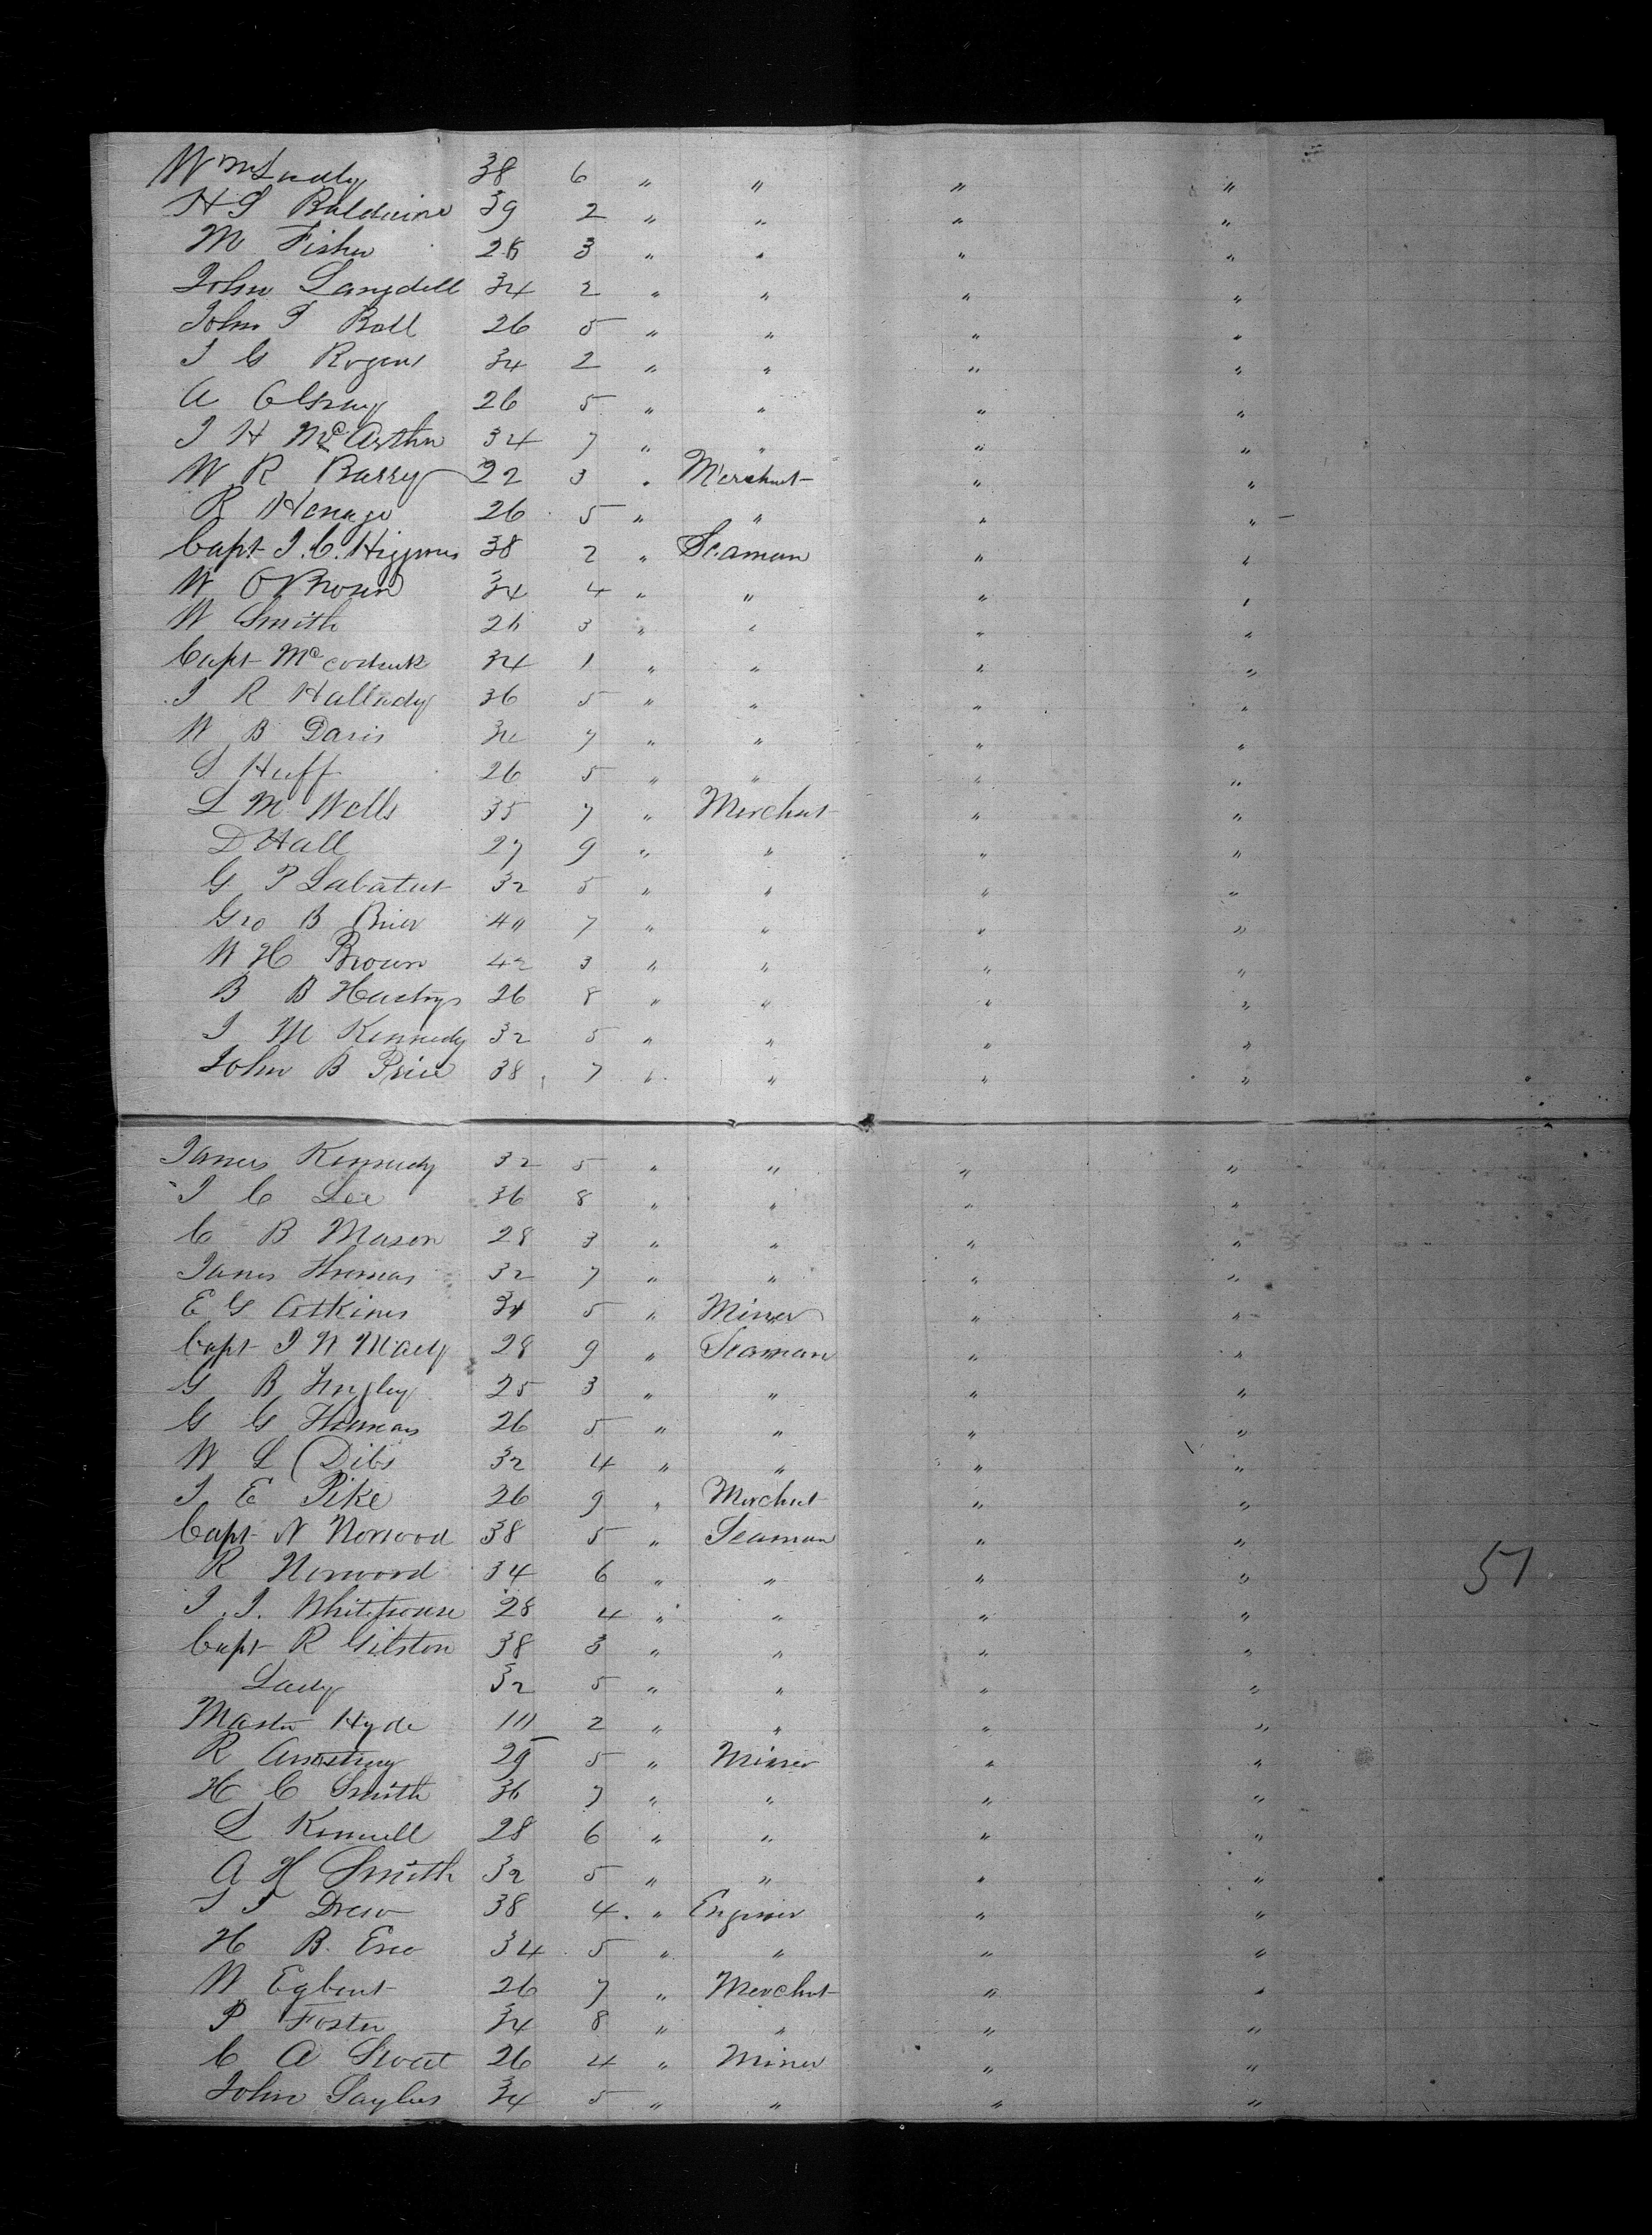 Wm Lu
H S Baldwine 39 2 " " " "
M Fisher 28 3 " " " "
John Langdell 34 2 " " " "
John T Ball 26 5 " " " "
J G Rogers 34 2 " " " "
A 26 5 " " " "
J H McArthur 34 7 " " " "
W R Barry 22 3 " Merchant " "
R Henage 26 5 " " " "
Capt J. C. Higgins 38 2 " Seaman " "
W O Brown 34 4 " " " "
W Smith 26 3 " " " "
Capt 34 1 " " " "
J R Hallady 36 5 " " " "
W B Davis 34 7 " " " "
S Huff 26 5 " " " "
L M Wells 35 7 " Merchant " "
D Hall 27 9 " " " "
G P Labatut 32 5 " " " "
Geo B Brier 40 7 " " " "
W H Brown 42 3 " " " "
B B Hastings 26 8 " " " "
J M Kennedy 32 5 " " " "
John B Price 38 7 " " " "
James Kennedy 32 5 " " " "
J C Lee 36 8 " " " "
C B Mason 28 3 " " " "
James Thomas 32 7 " " " "
E G Atkins 34 5 " Miner " "
Capt J W 28 9 " Seaman " "
G B 25 3 " " " "
G G Thomas 26 5 " " " "
W L Dibs 32 4 " " " "
J E Pike 26 9 " Merchut " "
Capt N Norwood 38 5 " Seaman " "
R Norwood 34 6 " " " " 51
J. J. Whitehouse 28 4 " " " "
Capt R Gilston 38 3 " " " "
Lady 32 5 " " " "
Master Hyde 2 " " " "
R Armstrong 29 5 " Miner " "
H C Smith 36 7 " " " "
L Kimwell 28 6 " " " "
A H Smith 32 5 " " " "
Drew 38 4 " Enginer " "
H B. 34 5 " " " "
W Egbert 26 7 " Merchut " "
P Foster 34 8 " " " "
C A Swat 26 4 " Miner " "
John Saylus 34 5 " " " "